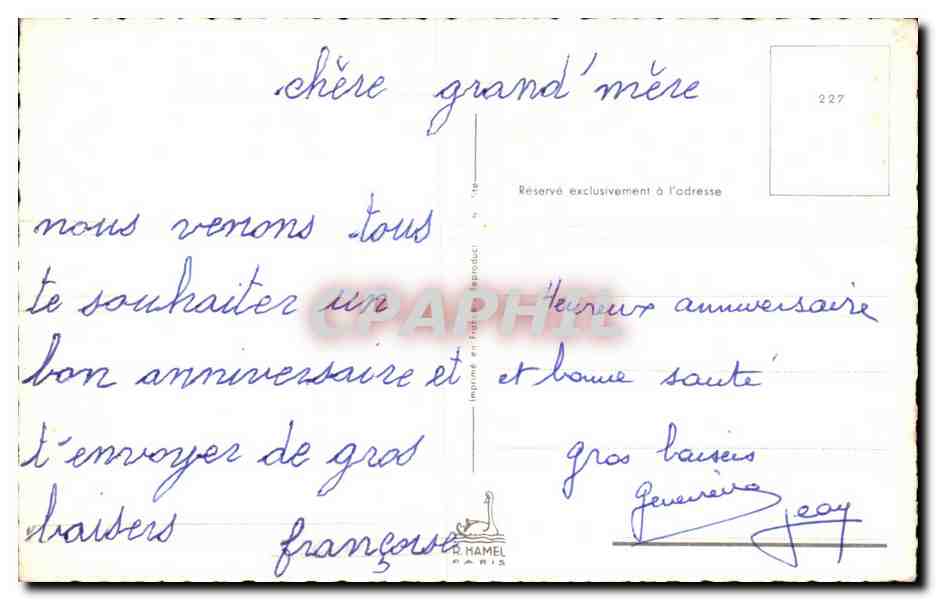 chère grand'mère
227
Réservé exclusivement à l'adresse
nous venons tous
te souhaiter un
bon anniversaire et
t'envoyer de gros
baisers
françoise
Heureux anniversaire
et bonne santé
gros baisers
Geneviève
Imprimé en France
R. HAMEL
PARIS
CPAPHIL